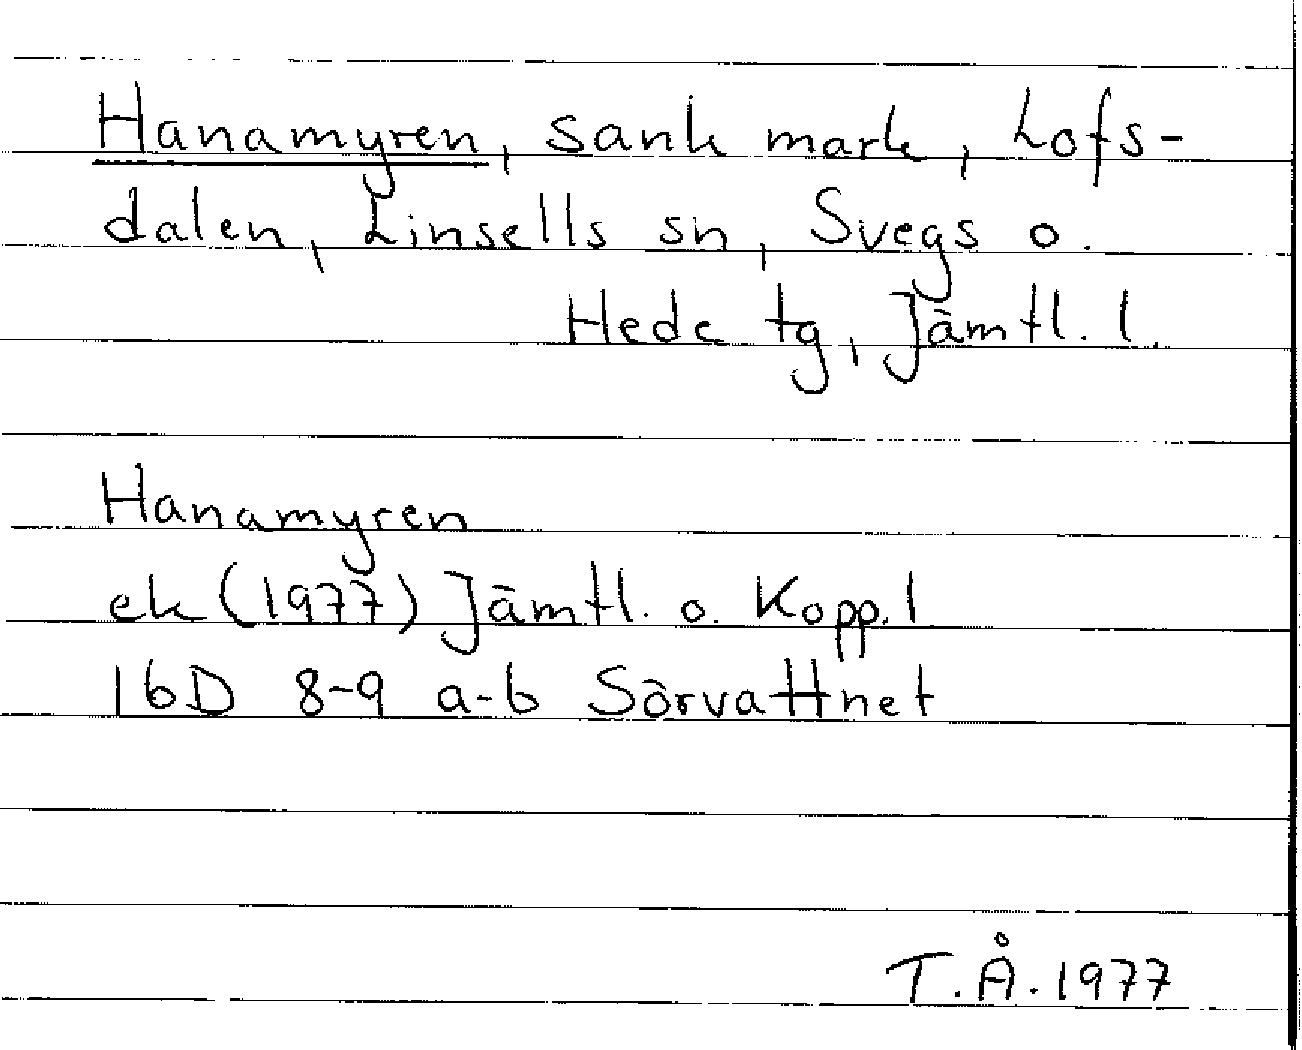 Hanamyren, sank mark, Lofs-
dalen, Linsells sn, Svegs o.
Hede tg, Jämtl. l.
Hanamyren
ek (1977) Jämtl. o. Kopp. l
16D 8-9 a-b Sörvattnet
T.Å. 1977